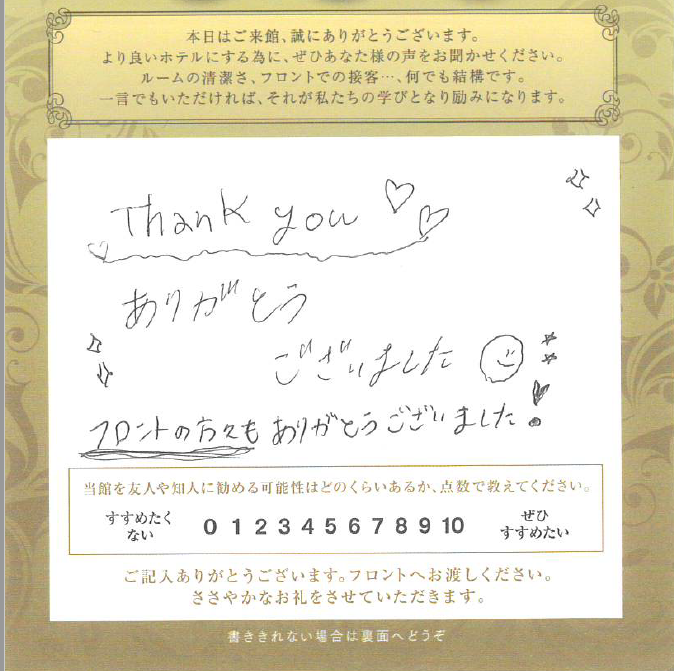 本日はご来館、誠にありがとうございます。
より良いホテルにする為に、ぜひあなた様の声をお聞かせください。
ルームの清潔さ、フロントでの接客…、何でも結構です。
一言でもいただければ、それが私たちの学びとなり励みになります。
Thank you
ありがとう
ございました
フロントの方々も ありがとうございました!
当館を友人や知人に勧める可能性はどのくらいあるか、点数で教えてください。
すすめたくない 0 1 2 3 4 5 6 7 8 9 10 ぜひすすめたい
ご記入ありがとうございます。フロントへお渡しください。
ささやかなお礼をさせていただきます。
書ききれない場合は裏面へどうぞ